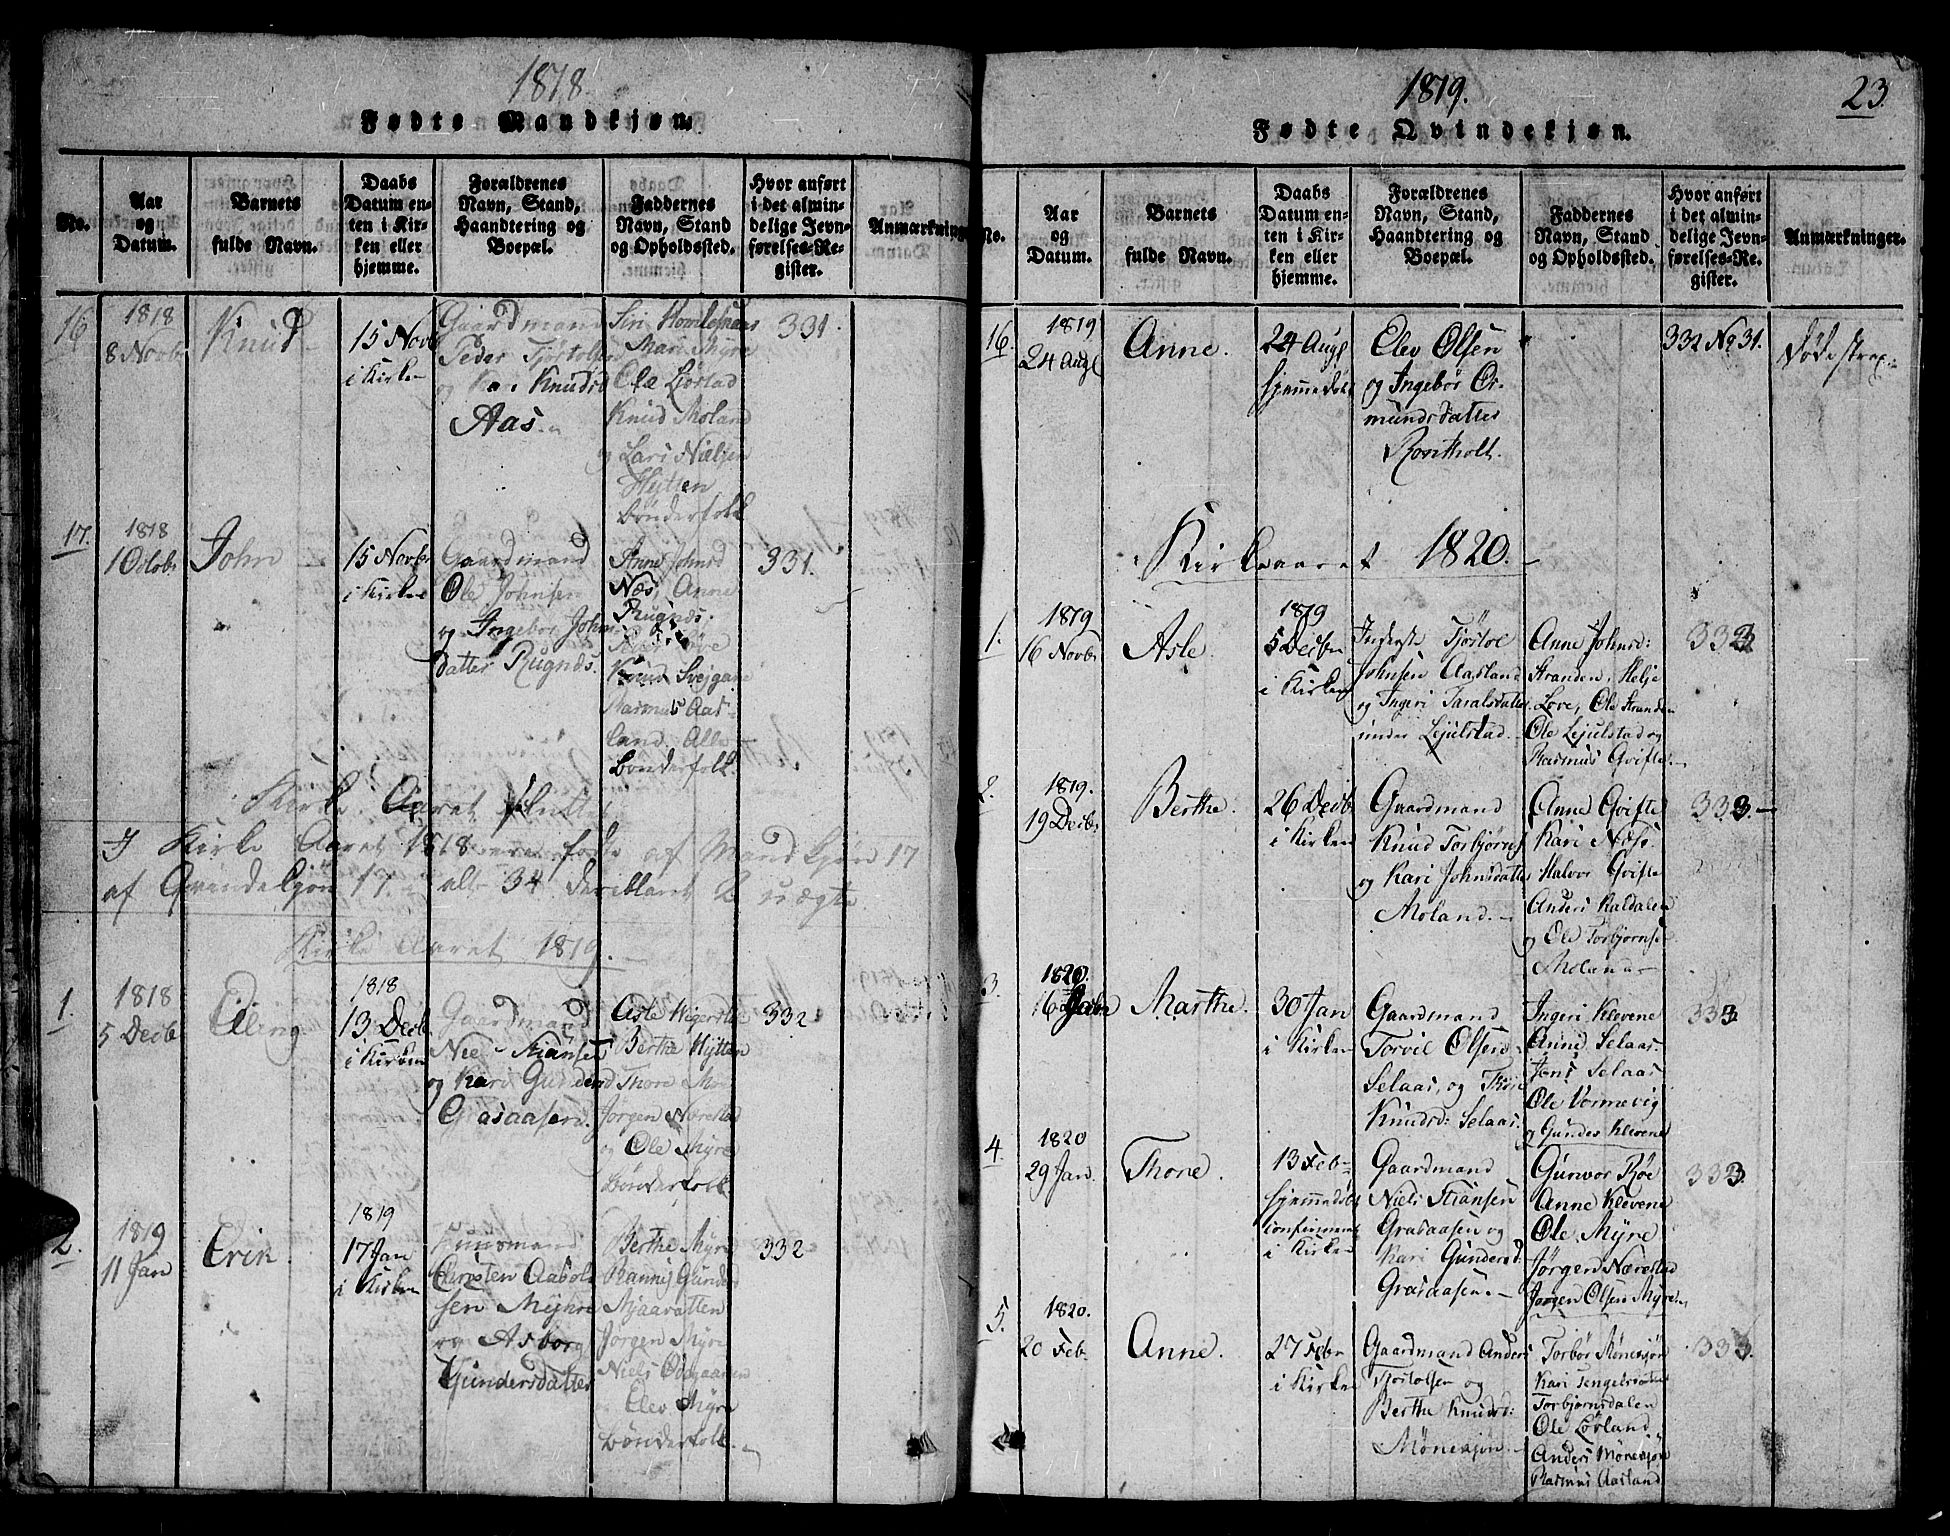 1818.
Fødte Mandkjøn.
No.
Aar
og
Datum.
Barnets
fulde Navn.
Daabs
Datum en-
ten i Kir-
ken eller
hjemme.
Forældrenes
Navn, Stand,
Haandtering og
Boepæl.
Faddernes
Navn, Stand
og Opholdssted.
Hvor anført
i det almin-
delige Jevn-
førelses-Re-
gister.
Anmærkninge
16
1818
8 Novbr
Knud
15 Novbr
i Kirken
Gaardmand
Peder Tjøstolsen
og Kari Knudsd
Aas.
Siri
Mari Myre
Ole
Knud Moland
og Lars Nielsen
Hytten
bønderfolk
331.
17.
1818
1 Octobr
John
15 Novbr
i Kirken
Gaardmand
Ole Johnsen
og Ingebør Johns
datter Rugnæs.
Anne Johnsd
Næs, Anne
Rugnæs.
Knud Svejgane
Rasmus Aas-
land. Alle
bønderfolk
331.
Kirke Aaret slutt
I Kirke Aaret 1818 ere føde af Mandkjøn 17
af Qvindekjøn 17. alt 34 deriblant 2 uægte
Kirke Aaret 1819.
1.
1818
5 Decbr
Elling
1818
13 Decbr
i Kirken
Gaardmand
Niels Stiansen
og Kari Gundersd
Grasaasen.
Asle
Berthe Hytten
Thore
Jørgen Nærestad
og Ole Myre
bønderfolk
332
2.
1819
11 Jan
Erik
1819
17 Jan
i Kirken
Huusmand
Christen Aabols
sen Myhre
og Asborg
Gundersdatter
Berthe Myre
Rannej Gunders
Mjaavatten
Jørgen Myre
Niels Odgaarden
Elev Myre
bønderfolk.
332
1819.
23.
Fødte Qvindekjøn.
No.
Aar
og
Datum.
Barnets
fulde Navn.
Daabs
Datum en-
ten i Kir-
ken eller
hjemme.
Forældrenes
Navn, Stand,
Haandtering og
Boepæl.
Faddernes
Navn, Stand
og Opholdssted.
Hvor anført
i det almin-
delige Jevn-
førelses-Re-
gister.
Anmærkninger.
16.
1819
24 Aug
Anne.
24 Aug
hjemmedøbt
Elev Olsen
og Ingebør Or-
mundsdatter
Rontholt.
332 No 31.
døde strax
Kirkeaaret 1820.
1.
1819
16 Novbr
Asle.
1819
5 Decbr
i Kirken
Inderste Tjøstol
Johnsen Aasland
og Ingeri Taralsdatter
under Lejulstad.
Anne Johnsd:
Stranden, Helje
Løve, Ole Stranden
Ole Lejulstad og
Rasmus Qvifte.
333
2.
1819.
19 Decbr
Berthe.
26 Decbr
i Kirken
Gaardmand
Knud Torbjørns
og Kari Johnsdatter
Moland.
Anne Qvifte
Kari Næs.
Halvor Qvifte
Anders Kaldalen
og Ole Torbjørnsen
Moland
333.
3.
1820.
16 Jan
Marthe.
30 Jan
i Kirken
Gaardmand
Torvil Olsen
Selaas, og Thore
Knudsd: Selaas.
Ingeri Klevene
Anne Selaas.
Jens Selaas
Ole Vormevig
og Gunder Klevene
333
4.
1820
29 Jan.
Thone.
13 Feb
hjemmedøbt
confirmeret
i Kirken
Gaardmand
Niels Stiansen
Grasaasen og
Kari Gundersd:
Grasaasen.
Gunvor Røe
Anne Klevene
Ole Myre
Jørgen Nærestad
Jørgen Olsen Myre.
333.
5.
1820.
20 Feb.
Anne.
27 Febr
i Kirken
Gaardmand Anders
Tjøstolsen og
Berthe Knudsd:
Mønesjøn.
Torbør Mønesjøn
Kari Tengelsdatter
Torbjørnsdalen
Ole Løvland
Anders Mønesjøn
Rasmus Aasland
333.